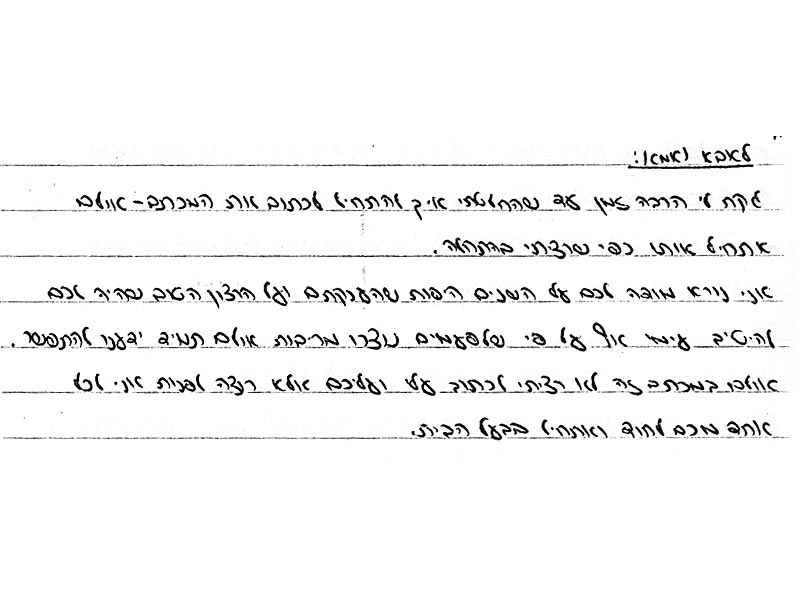 לאבא ואמא:
לקח לי הרבה זמן עד שהחלטתי איך להתחיל לכתוב את המכתב - אולם
אתחיל אותו כפי שרציתי בהתחלה.
אני נורא מודה לכם על השנים היפות שהענקתם ועל הרצון הטוב שהיה לכם
להיטיב עימי אף על פי שלפעמים נוצרו מריבות אולם תמיד ידענו להתפשר.
אולם במכתב זה לא רציתי לכתוב עלי ועליכם אלא רוצה לפנות אני לכל
אחד מכם לחוד ואתחיל בבעל הבית.